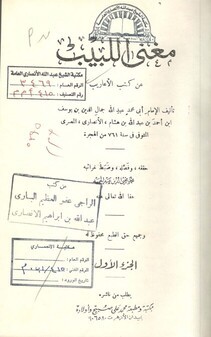 مغني اللبيب
مكتبة الشيخ عبد الله الأنصاري العامة
عن كتب الأعاريب
تأليف الإمام أبي محمد عبد الله جمال الدين بن يوسف
ابن أحمد بن عبد الله بن هشام، الأنصاري، المصري
المتوفى في سنة ٧٦١ من الهجرة
حققه، وفصله، وضبط غرائبه
عفا الله تعالى عنه
من كتب
الراجي عفو المنعم الباري
عبد الله بن إبراهيم الأنصاري
وجميع حق الطبع محفوظ له
الجزء الأول
يطلب من ناشره
مكتبة ومطبعة محمد علي صبيح وأولاده